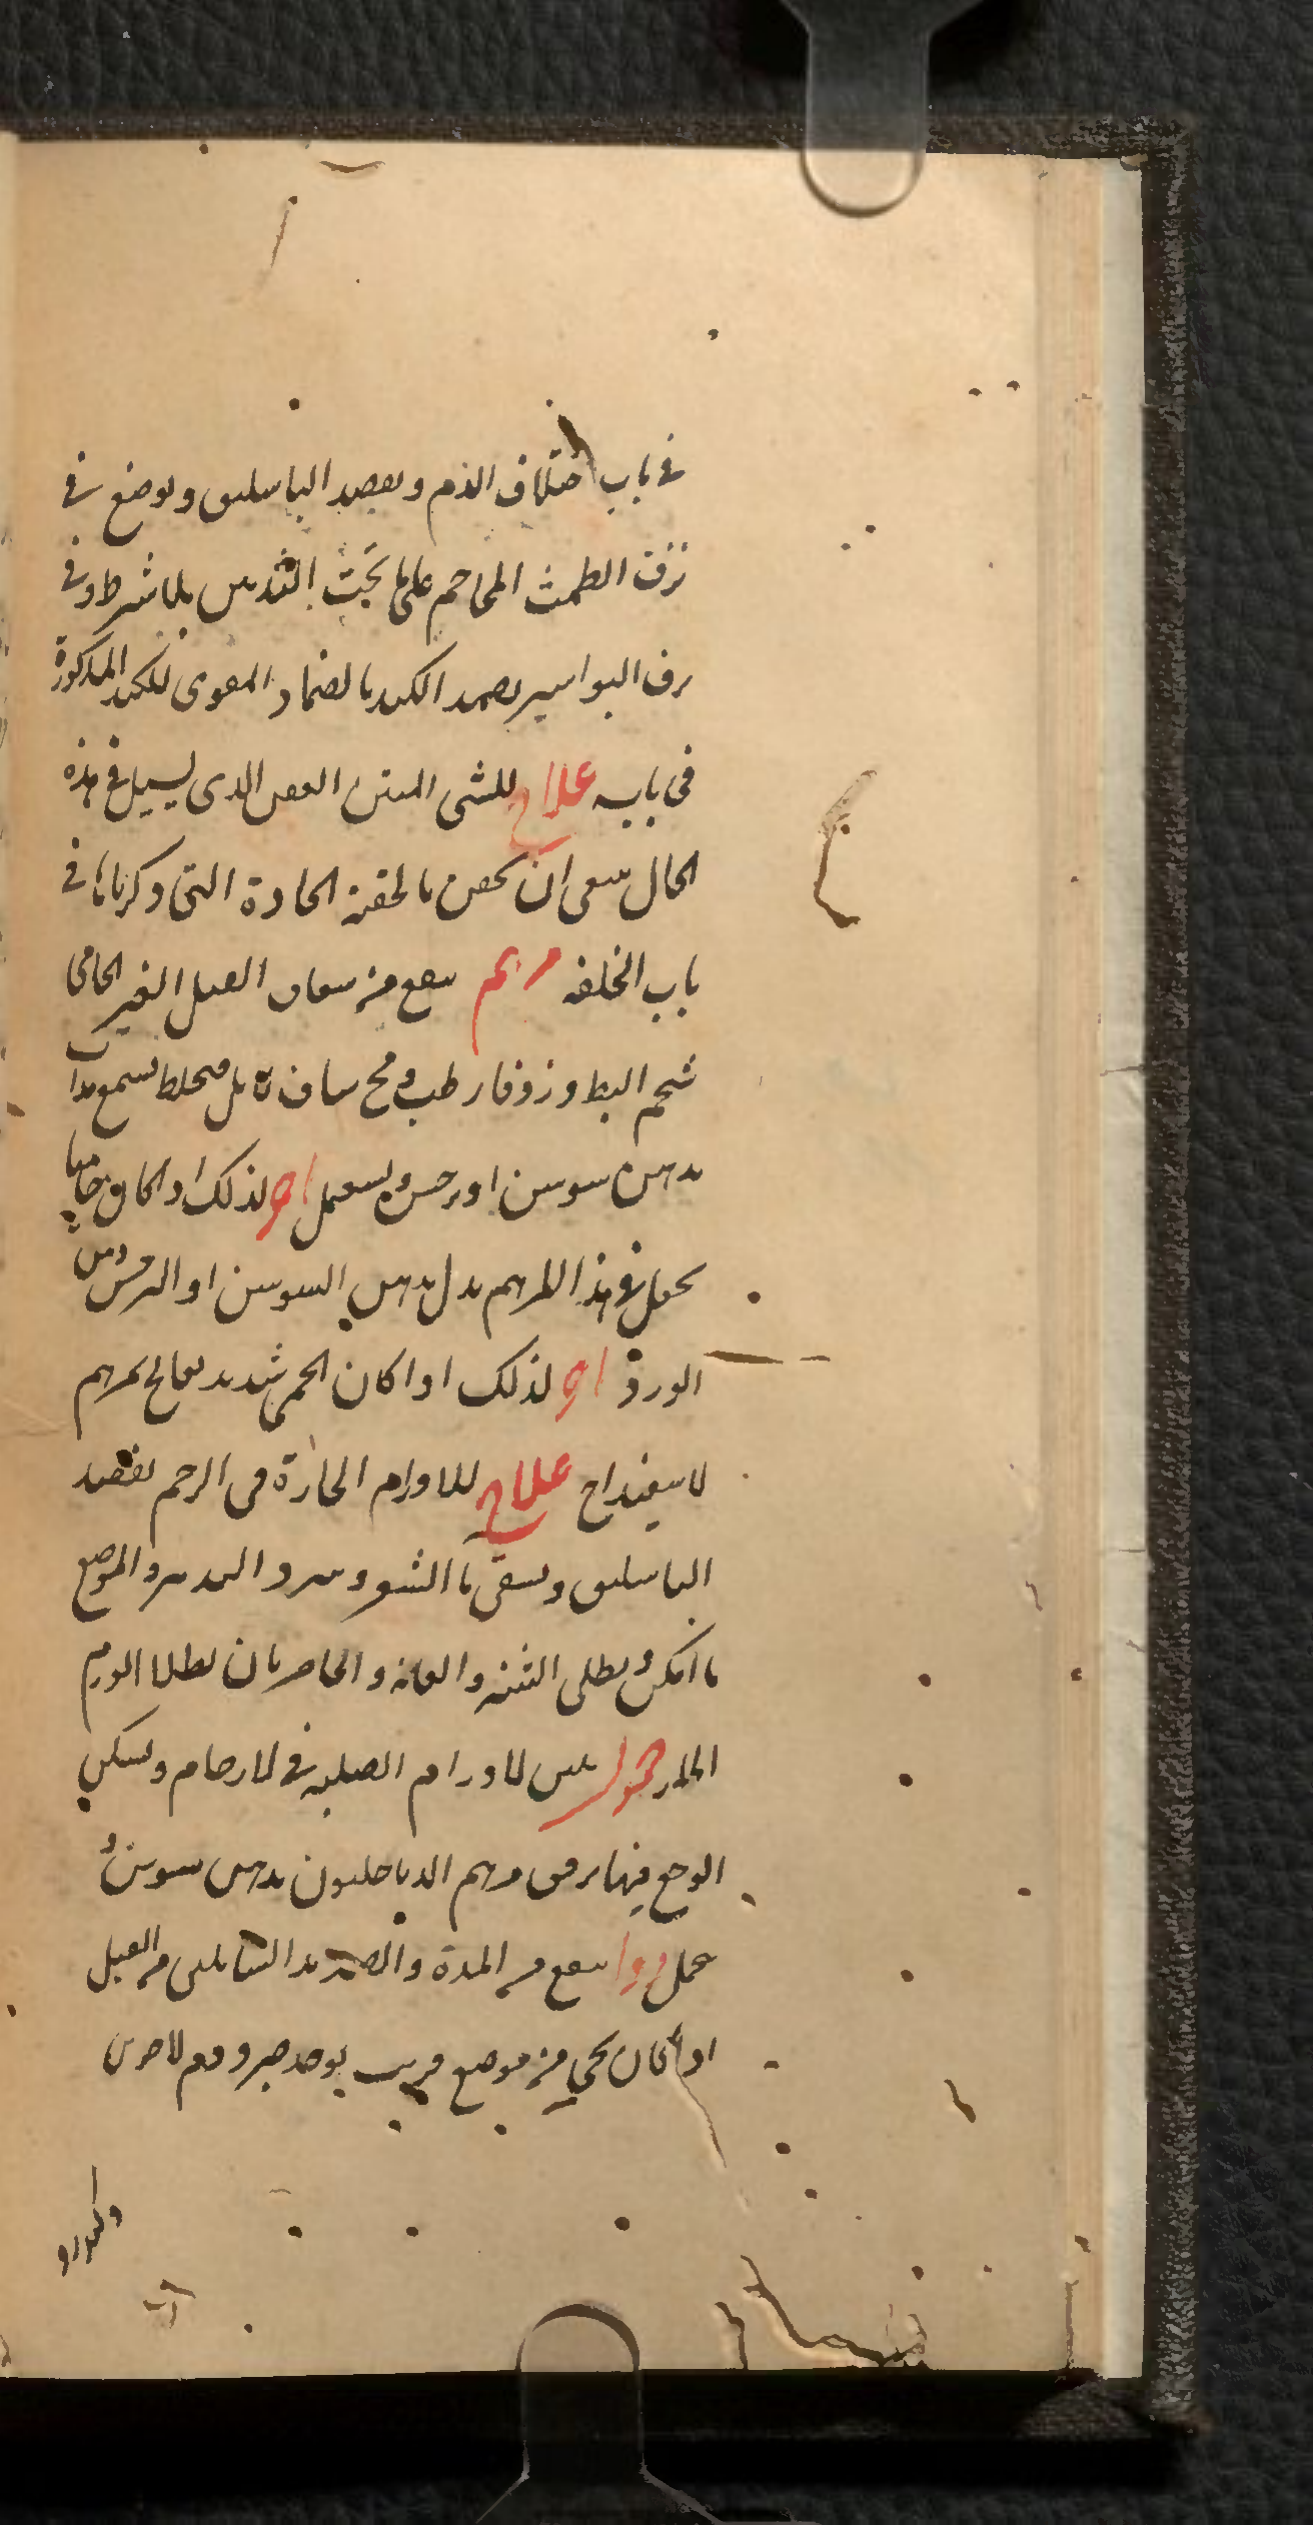 في باب اختلاف الدم ويفصد الباسليق ويوضع في
نزف الطمث المحاجم على ما تحت الثديين بلا شرط وفي
نزف البواسير يضمد الكبد بالضماد المقوي للكبد المذكورة
في بابه علاج للشي المنتن العفن الذي يسيل في هذه
الحال ينبغي ان يحقن بالحقنة الحادة التي ذكرناها في
باب الخلفه مرهم ينفع من القبل الغير
شحم البط وزوفا رطب ومخ ساق يخلط بشمع مذاب
بدهن سوسن او نرجس ويستعمل اخر لذلك اذا كان حاميا
يجعل في هذا المرهم بدل دهن السوسن او النرجس دهن
الورد اخر لذلك اذا كان الحمى شديد يعالج بمرهم
الاسفيداج علاج للاورام الحارة في الرحم يفصد
الباسليق ويسقى ما الشعير ويبرد التدبير والموضع
ما امكن ويطلى الثنه والعانه والخاصرتان بطلا الورم
الحار حمول يلين الاورام الصلبه في الارحام ويسكن
الوجع فيها يرقق مرهم الدياخليون بدهن سوسن و
يحمل دوا ينفع من المدة والصديد السايلين من القبل
اذا كان يجي من موضع قريب يوخذ صبر ودم الاخوين
وكندر و